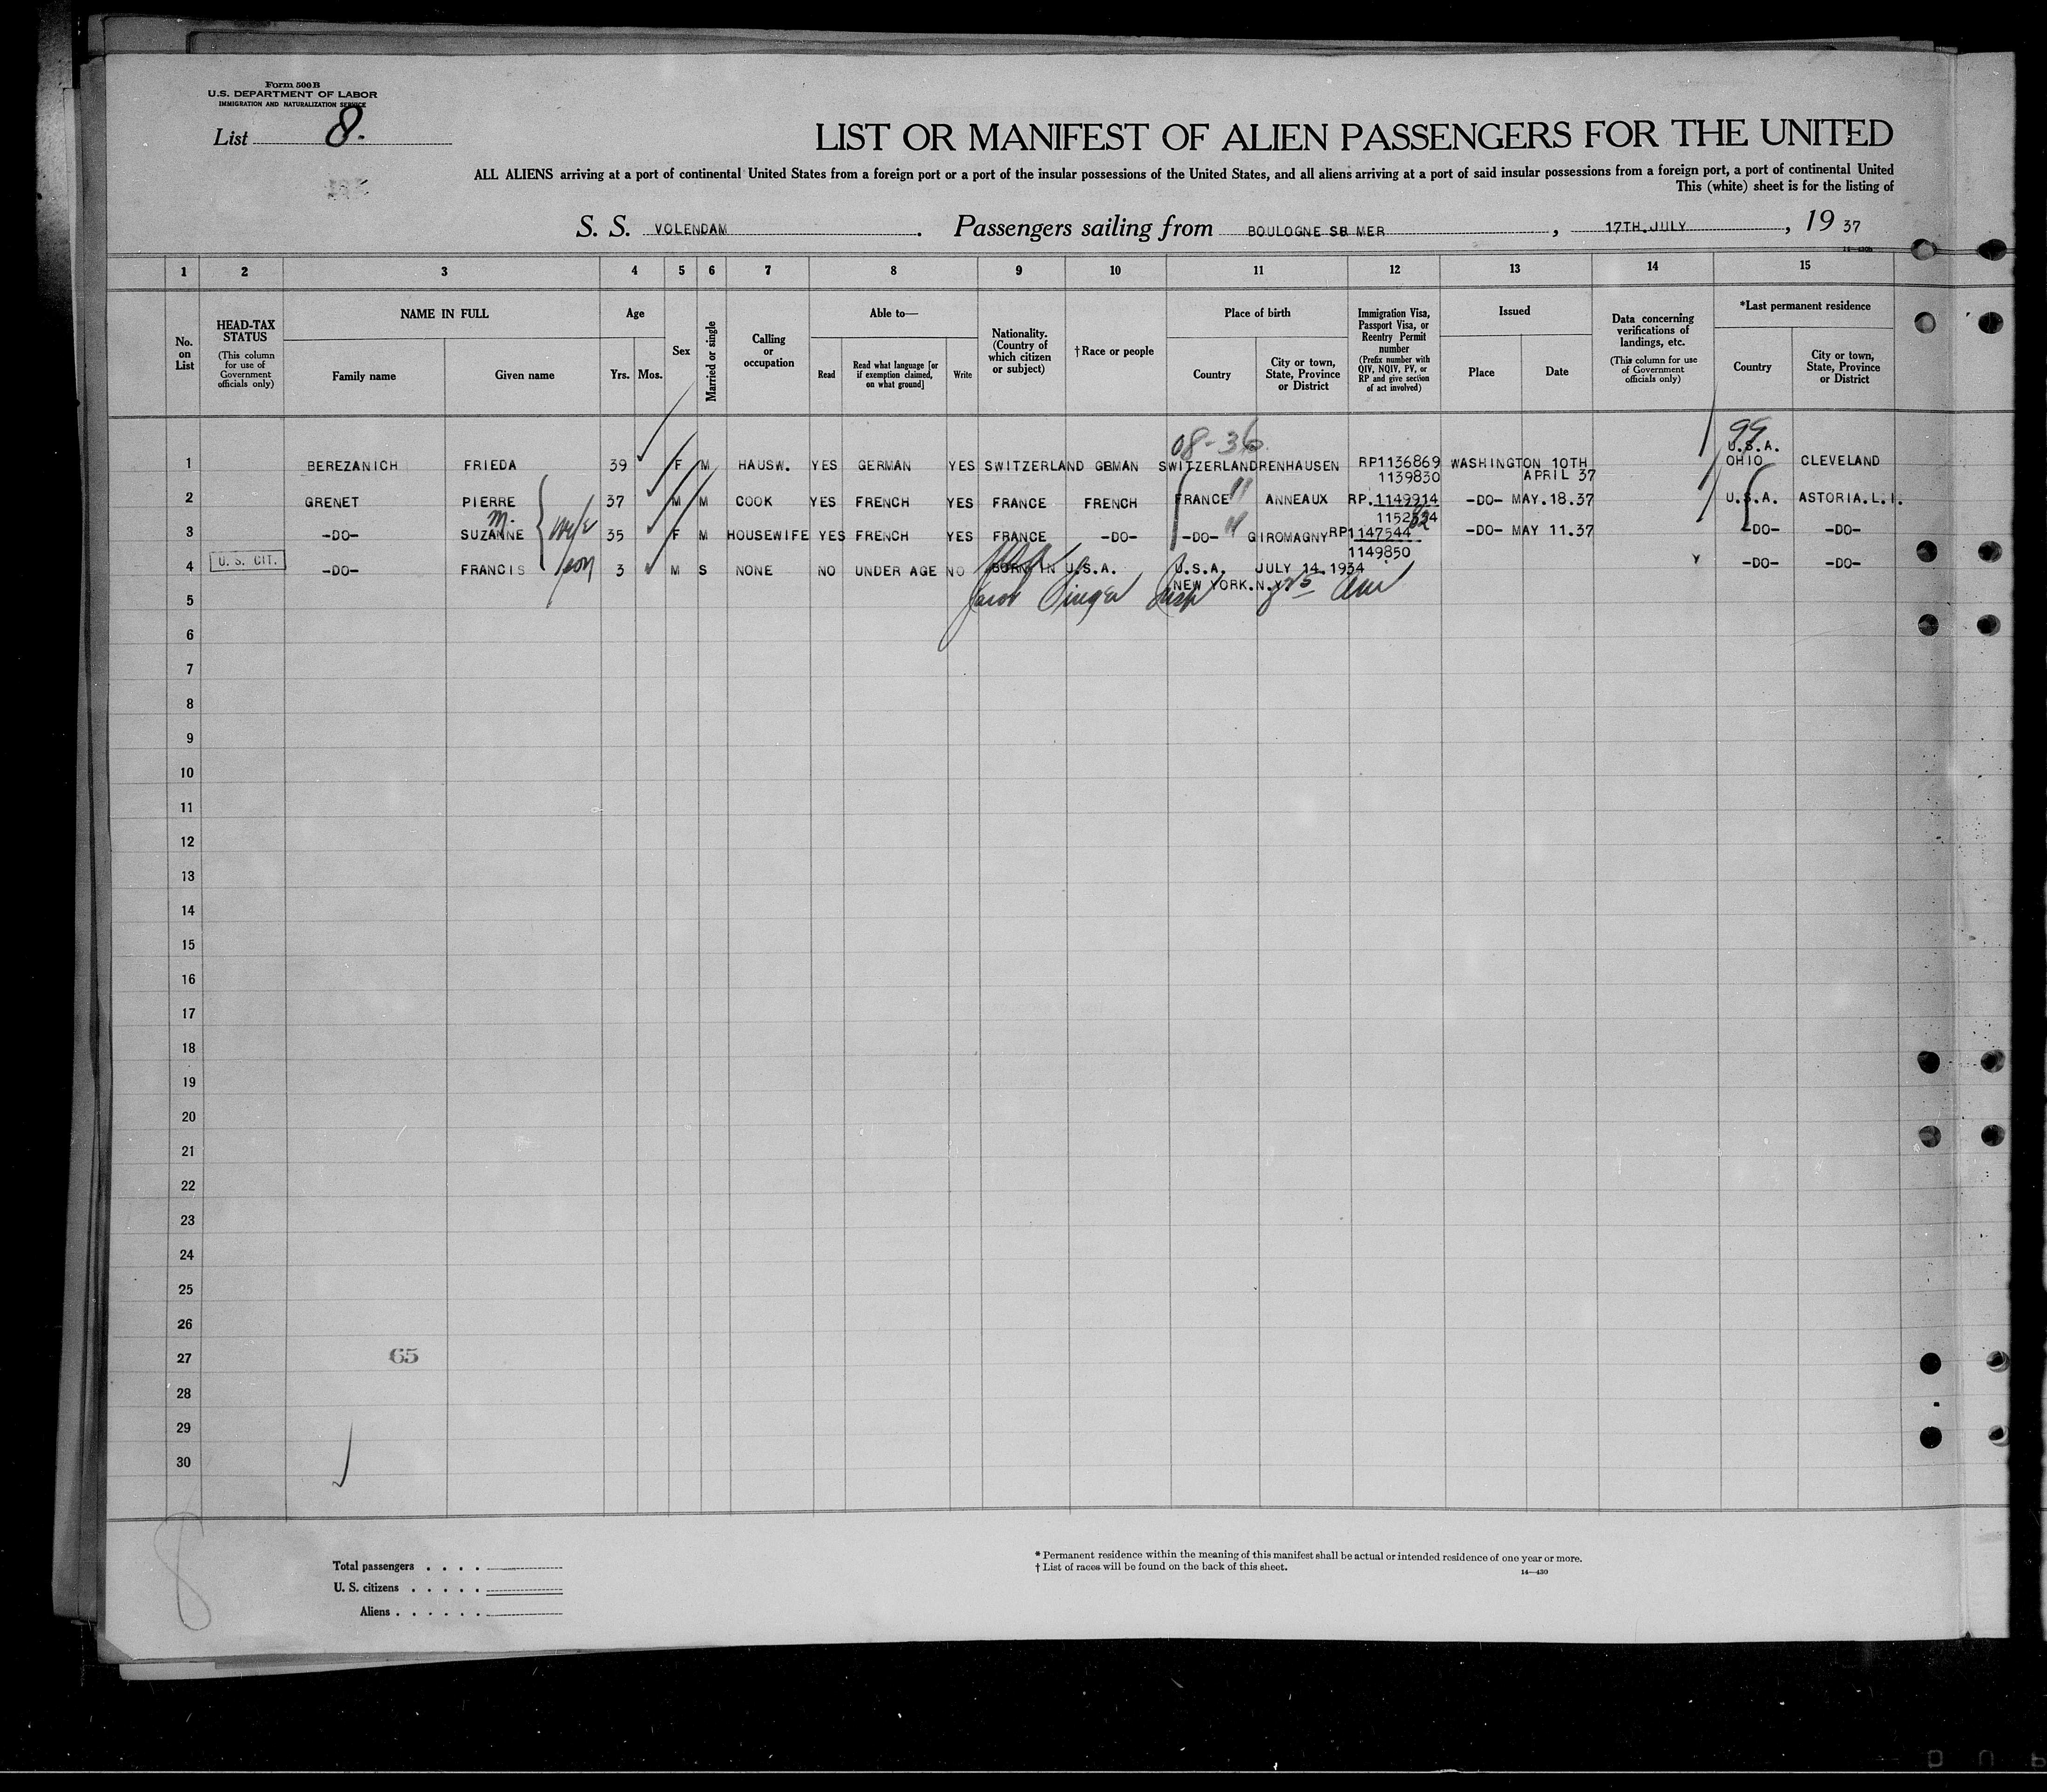 Form 500 B
U. S. DEPARTMENT OF LABOR
IMMIGRATION AND NATURALIZATION SERVICE
List 8.
LIST OR MANIFEST OF ALIEN PASSENGERS FOR THE UNITED
ALL ALIENS arriving at a port of continental United States from a foreign port or a port of the insular possessions of the United States, and all aliens arriving at a port of said insular possessions from a foreign port, a port of continental United
This (white) sheet is for the listing of
S. S. VOLENDAM. Passengers sailing from BOULOGNE SB MER, 17TH.JULY, 19 37
1 2 3 4 5 6 7 8 9 10 11 12 13 14 15
No. on List
HEAD-TAX STATUS
(This column for use of Government officials only)
NAME IN FULL
Family name
Given name
Age
Yrs.
Mos.
Sex
Married or single
Calling or occupation
Able to—
Read
Read what language [or if exemption claimed, on what ground]
Write
Nationality. (Country of which citizen or subject)
†Race or people
Place of birth
Country
City or town, State, Province or District
Immigration Visa, Passport Visa, or Reentry Permit number
(Prefix number with QIV, NQIV, PV, or RP and give section of act involved)
Issued
Place
Date
Data concerning verifications of landings, etc.
(This column for use of Government officials only)
*Last permanent residence
Country
City or town, State, Province or District
08-36
99
U.S.A.
1 BEREZANICH FRIEDA 39 F M HAUSW. YES GERMAN YES SWITZERLAND GBMAN SWITZERLANDRENHAUSEN RP1136869 WASHINGTON 10TH OHIO CLEVELAND
1139830 APRIL 37
2 GRENET PIERRE 37 M M COOK YES FRENCH YES FRANCE FRENCH FRANCE 11 ANNEAUX RP.1149914 -DO- MAY.18.37 U.S.A. ASTORIA.L.I.
M.
3 -DO- SUZANNE wife 35 F M HOUSEWIFE YES FRENCH YES FRANCE -DO- -DO- 11 GIROMAGNY RP1147544 -DO- MAY 11.37 -DO- -DO-
1149850
U. S. CIT.
4 -DO- FRANCIS son 3 M S NONE NO UNDER AGE NO BORN IN U.S.A. U.S.A. JULY 14.1934 -DO- -DO-
NEW YORK.N.Y.
5
6
7
8
9
10
11
12
13
14
15
16
17
18
19
20
21
22
23
24
25
26
27 65
28
29
30
8
Total passengers . . . .
U. S. citizens . . . . .
Aliens . . . . . .
* Permanent residence within the meaning of this manifest shall be actual or intended residence of one year or more.
† List of races will be found on the back of this sheet.
14—430